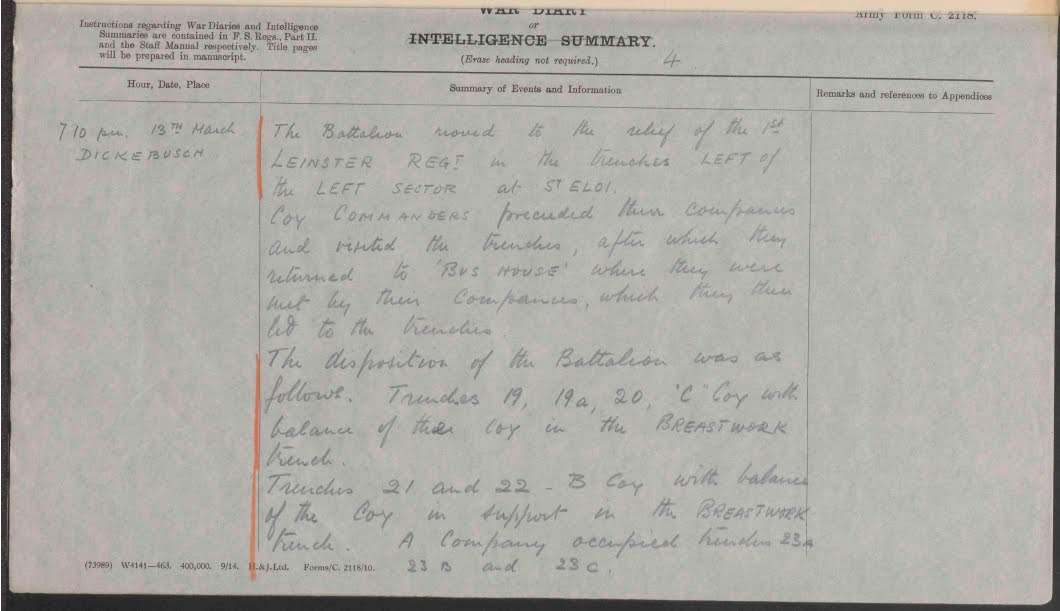 WAR DIARY
Army Form C. 2118.
Instructions regarding War Diaries and Intelligence
Summaries are contained in F. S. Regs., Part II.
and the Staff Manual respectively. Title pages
will be prepared in manuscript.
or
INTELLIGENCE SUMMARY.
(Erase heading not required.)
4
Hour, Date, Place
Summary of Events and Information
Remarks and references to Appendices
7 10 pm. 13TH March
DICKEBUSCH
The Battalion moved to the relief of the 1st
LEINSTER REGT in the trenches LEFT of
the LEFT SECTOR at ST ELOI.
Coy COMMANDERS preceeded their companies
and visited the trenches, after which they
returned to 'BUS HOUSE' where they were
met by their Companies, which they then
led to the trenches.
The disposition of the Battalion was as
follows. Trenches 19, 19a, 20, "C" Coy with
balance of the Coy in the BREASTWORK
trench.
Trenches 21 and 22 - B Coy with balance
of the Coy in support in the BREASTWORK
trench. A Company occupied trenches 23A
23 B and 23 C.
(73989) W4141—463. 400,000. 9/14. H.&J.Ltd. Forms/C. 2118/10.